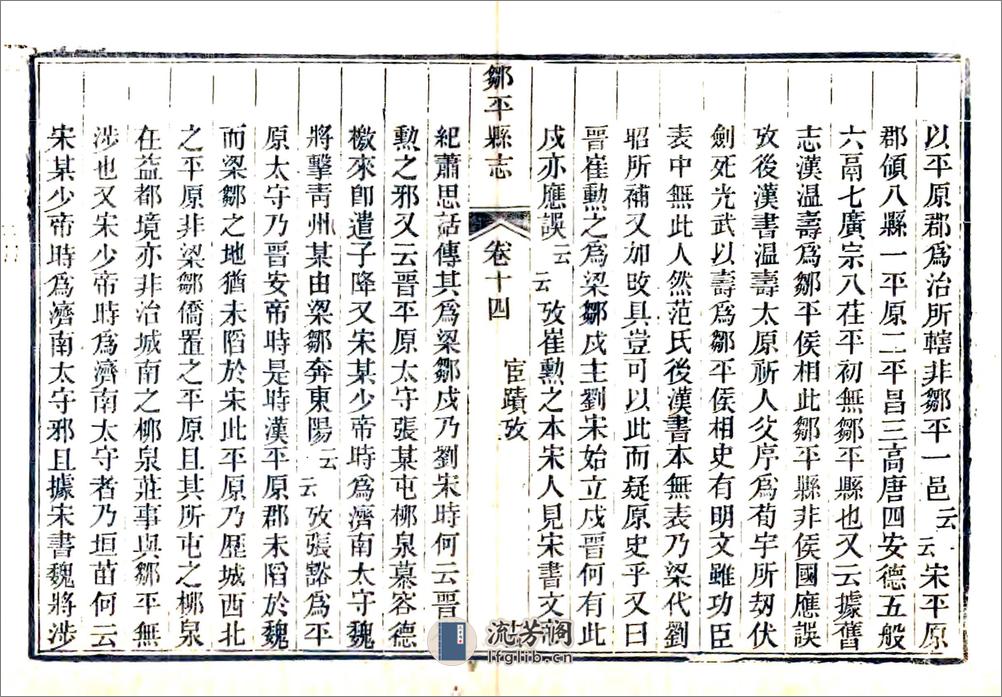 以平原郡爲治所轄非鄒平一邑云云宋平原
郡領八縣一平原二平昌三高唐四安德五般
六鬲七廣宗八茌平初無鄒平縣也又云據舊
志漢温壽爲鄒平侯相此鄒平縣非侯國應誤
攷後漢書温壽太原祈人父序爲荀宇所刼伏
劍死光武以壽爲鄒平侯相史有明文雖功臣
表中無此人然范氏後漢書本無表乃梁代劉
昭所補又如攷具豈可以此而疑原史乎又曰
晉崔勲之爲梁鄒戍主劉宋始立戍晉何有此
戍亦應誤云云攷崔勲之本宋人見宋書文
鄒平縣志
卷十四
宦蹟攷
紀蕭思話傳其爲梁鄒戍乃劉宋時何云晉
勲之邪又云晉平原太守張某屯柳泉慕容德
檄來卽遣子降又宋某少帝時爲濟南太守魏
將擊青州某由梁鄒奔東陽云云攷張豁爲平
原太守乃晉安帝時是時漢平原郡未䧟於魏
而梁鄒之地猶未䧟於宋此平原乃歷城西北
之平原非梁鄒僑置之平原且其所屯之柳泉
在益都境亦非治城南之柳泉莊事與鄒平無
涉也又宋少帝時爲濟南太守者乃垣苗何云
宋某少帝時爲濟南太守邪且據宋書魏將涉
流芳阁
lfglib.cn